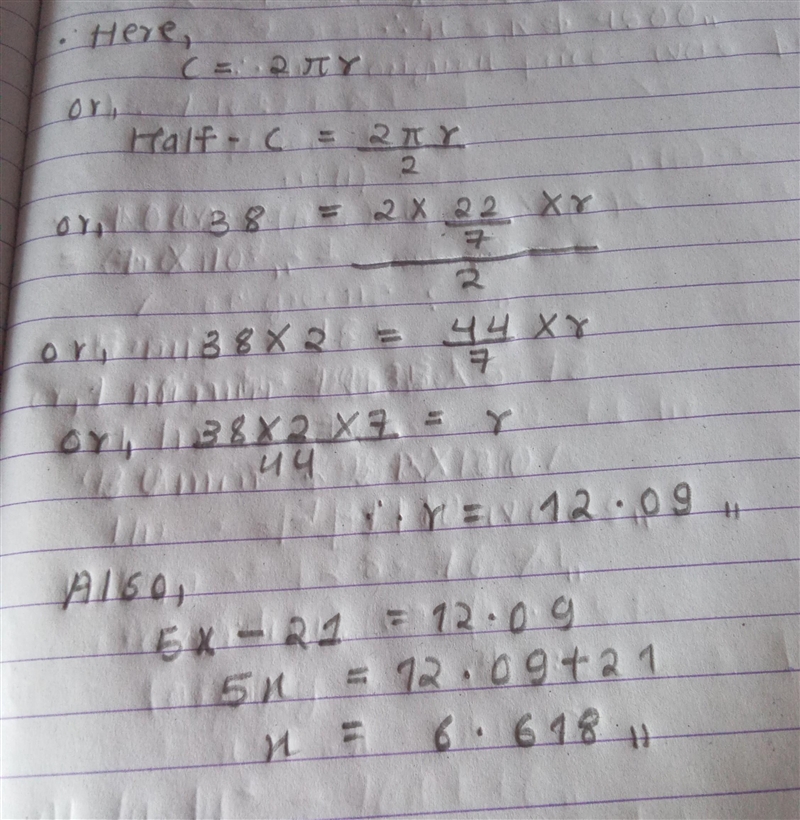 . Here,
C = 2πr
or,
Half - C = 2πr/2
or, 38 = 2 × 22/7 × r/2
or, 38 × 2 = 44/7 × r
or, 38 × 2 × 7/44 = r
∴ r = 12.09 "
Also,
5x - 21 = 12.09
5x = 12.09 + 21
x = 6.618 "